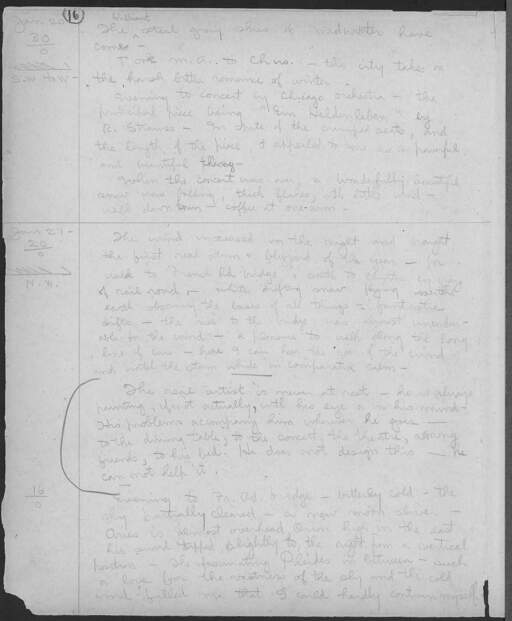 Jan 20 -
16
without
The steel gray skies of midwinter have
30
come -
0
T. or M.A. to Chins. - the city takes on
S.W. to W -
the harsh bitter romance of winter
Evening to concert by Chicago orchestra - the
principal piece being "Ein Heldenleben" by
R. Strauss - In spite of the cramped seats, and
the length of the piece, it appealed to me as a powerful
and beautiful thing -
When the concert was over, a wonderfully beautiful
snow was falling, thick flakes, little wind -
walk down town - coffee at one-arm -
Jan 21 -
The wind increased in the night and brought
20
the first real storm & blizzard of the year -
0
walk to bridge
N.W.
of rail road, - white drifting snow flying
earth obscuring the bases of all things - fantastic
drifts - the rise to the bridge was almost unendur-
able for the wind - a pleasure to walk along the long
line of cars - here I can hear the roar of the wind
and watch the storm while in comparative calm -
The real artist is never at rest - he is always
painting, if not actually, with his eye or in his mind -
His problems accompany him wherever he goes -
to the dining table, to the concert, the theatre, among
friends, to his bed. He does not design this - he
can not help it.
16
0
Evening to bridge - bitterly cold - the
sky partially cleared - a new moon shines -
Aries is almost overhead, Orion high in the east
his sword tipped slightly to the right from a vertical
position - The fascinating Pleiades in between - such
a love for the vastness of the sky and the cold
wind filled me that I could hardly contain myself